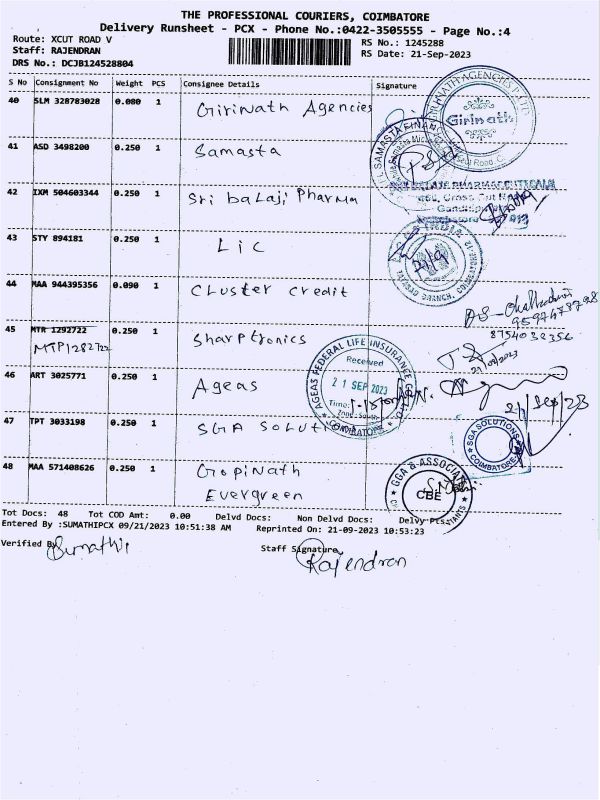 THE PROFESSIONAL COURIERS, COIMBATORE
Delivery Runsheet - PCX - Phone No.:0422-3505555 - Page No.:4
Route: XCUT ROAD V
RS No.: 1245288
Staff: RAJENDRAN
RS Date: 21-Sep-2023
DRS No.: DCJB124528804
S No Consignment No Weight PCS Consignee Details Signature
40 SLM 328783028 0.080 1 Girinath Agencies
Girinath
41 ASD 3498200 0.250 1 Samasta
42 IXM 504603344 0.250 1 Sri balaji Pharma
43 STY 894181 0.250 1 Lic
44 MAA 944395356 0.090 1 Cluster Credit
45 MTR 1292722 0.250 1 Sharptronics
8754032356
46 ART 3025771 0.250 1 Ageas
AGEAS FEDERAL LIFE INSURANCE
Received
21 SEP 2023
Time:
COIMBATORE
21/Sep/23
47 TPT 3033198 0.250 1 SGA SOLUT
SGA SOLUTIONS
COIMBATORE
48 MAA 571408626 0.250 1 Gopinath
Evergreen
GGA & ASSOCIATES
CBE
Tot Docs: 48 Tot COD Amt: 0.00 Delvd Docs: Non Delvd Docs: Delvy Pts:
Entered By :SUMATHIPCX 09/21/2023 10:51:38 AM Reprinted On: 21-09-2023 10:53:23
Verified By Sumathi
Staff Signature
Rajendran